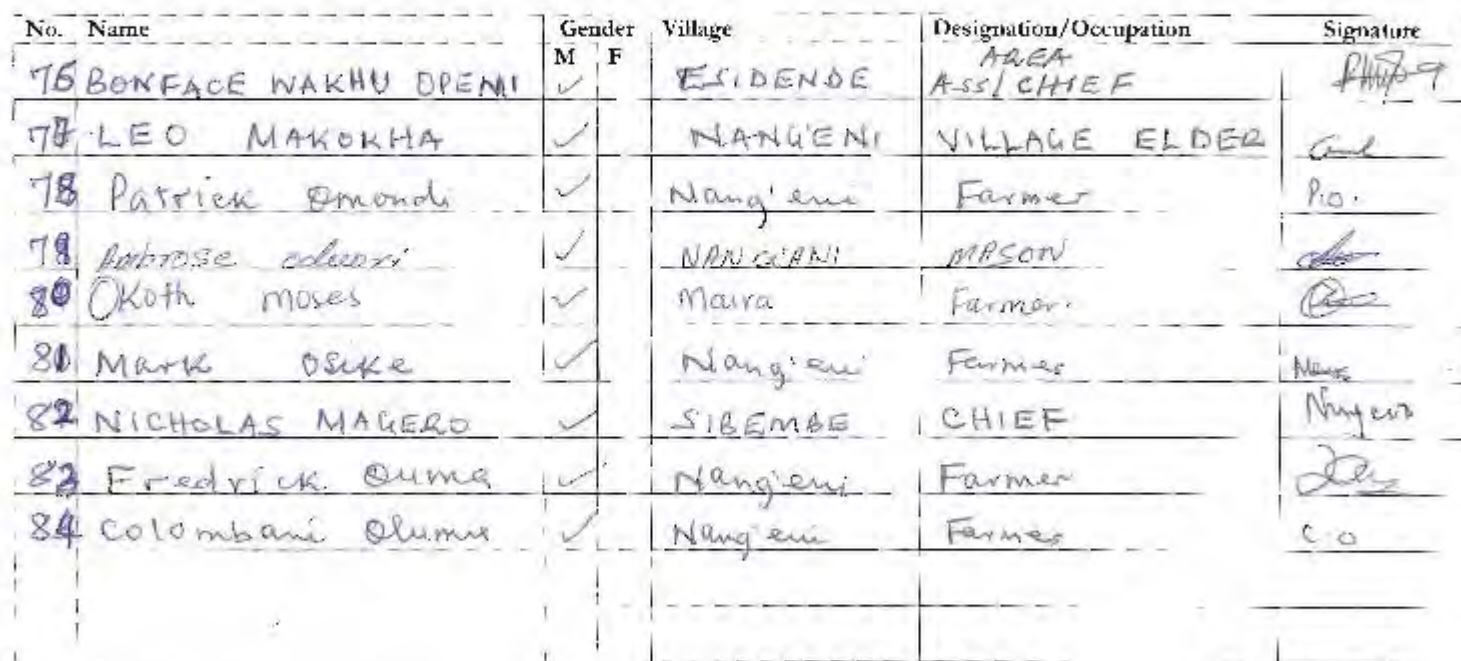 No. Name Gender Village Designation/Occupation Signature
M F AREA
76 BONFACE WAKHU OPEMI ✓ ESIDENDE ASS/CHIEF
77 LEO MAKOKHA ✓ NANG'ENI VILLAGE ELDER
78 Patrick Omondi ✓ Nang'eni Farmer P.O.
79 Ambrose ✓ NANG'ANI MASON
80 Okoth moses ✓ Maira Farmer.
81 Mark Osike ✓ Nang'eni Farmer
82 NICHOLAS MAGERO ✓ SIBEMBE CHIEF
83 Fredrick Ouma ✓ Nang'eni Farmer
84 Colombani Olumu ✓ Nang'eni Farmer C.O